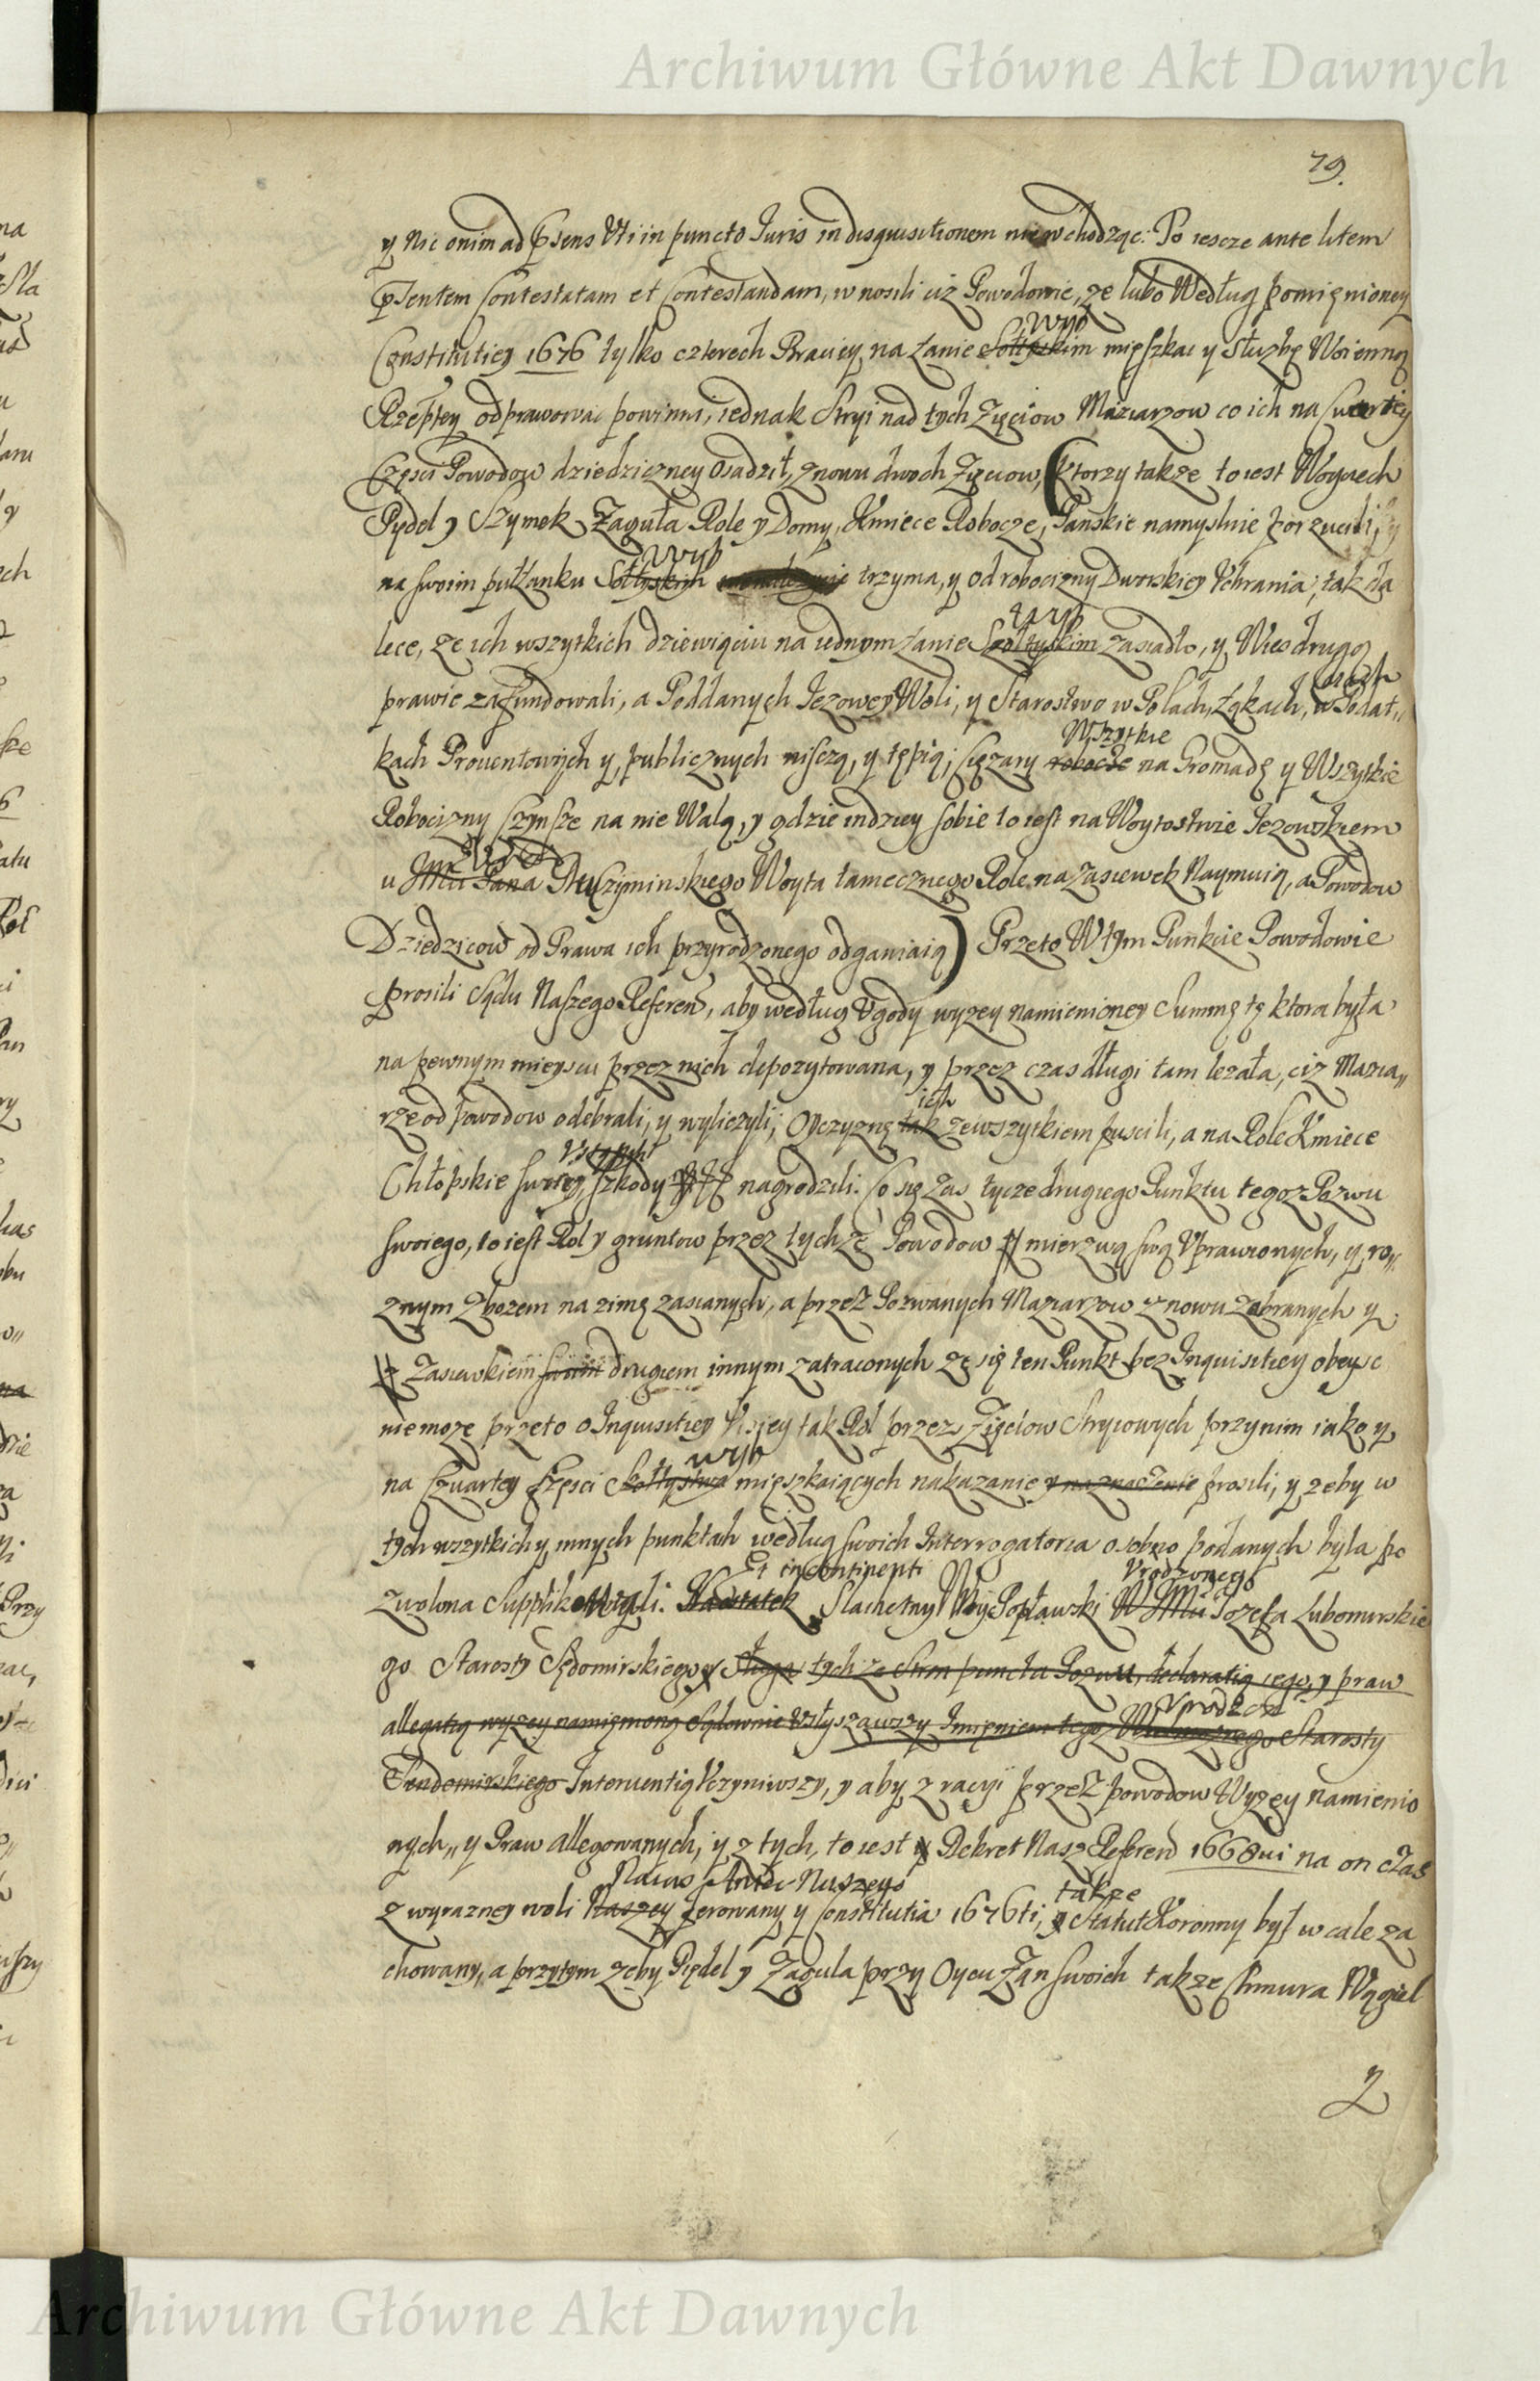 Archiwum Główne Akt Dawnych
79.
y nic onim ad psens Uti in puncto Iuris in disquisitionem nie wchodząc. Po iescze ante litem
psentem Contestatam et Contestandam, wnosili ciż Powodowie, ze lubo Według pomięnioney
Wyb
Constitutiey 1676 tylko czterech Braciey na Łanie Sołtyskim mięszkac y Służbę Woienną
Rzeptey odprawowac powinni, iednak Stryi nad tych Zięciow Maziarzow co ich na Cwartey
Częsci Powodow dziedziczney Osadził, znowu dwoch Zięciow, (ktorzy takze to iest Woyciech
Pydel y Szymek Zaguła Role y Domy Kmiece Robocze, Panskie namyslnie porzucili, y
Wyb
na swoim pułłanku Sołtyskich trzyma, y od robocizny Dworskiey Uchrania, tak da
Wyb
lece, ze ich wszytkich dziewięciu na iednym Łanie Szołtyskim zasiadło, y Wies drugą
prawie zafundowali, a Poddanych Iezowey Woli, y Starostwo w Polach, Łąkach, w Podat„
Wszytkie
kach Prouentowych y publicznych niszczą, y tępią; Cięzary robocze na Gromadę y Wszytkie
Robocizny Czynsze na nie Walą, y gdzie indziey sobie to iest na Woytostwie Iezowskiem
u Jmci Pana Woyta tamecznego Role na zasiewek Naymuią, a Powodow
Dziedzicow od Prawa ich przyrodzonego odganiaią) Przeto W tym Punkcie Powodowie
prosili Sądu Naszego Referen, aby według Ugody wyzey namienioney Summę tę ktora była
na pewnym mieyscu przez nich depozytowana, y przez czas długi tam lezała, ciz Mazia„
ich
rze od Powodow odebrali, y wyliczyli, Oyczyznę tak zewszytkiem puscili, a na Role Kmiece
Chłopskie szkody nagrodzili. Co się zas tycze drugiego Punktu tegoz Pozwu
swoiego, to iest Rol y gruntow przez tychze Powodow mierzwą swą Uprawionych, y ro„
znym Zbozem na zimę zasianych, a przez Pozwanych Maziarzow znowu zabranych y
Zasiewkiem swoim drugiem innym zatraconych ze się ten Punkt bez Inquisitiey obeysc
nie moze przeto o Inquisitiey tak Rol przez Zięciow Stryiowych przy nim iako y
wyb
na Czwartey Częsci Sołtystwa mięszkaiących nakazanie y naznaczenie prosili, y zeby w
tych wszytkich y innych punktach według swoich Interrogatoria osobno podanych była po
Et in continenti Urodzonego
zwolona Supplikowali. Naostatek Slachetny Popławski W Jmci Iozefa Lubomirskie
go Starosty Sędomirskiego Sługa tychze puncta Pozwu, declaratią iego, y praw
allegatią wyzey namięnioną Sądownie Usłyszawszy Imięniem tego Starosty
Sendomirskiego Interuentią Uczyniwszy, y aby z racyi przez powodow Wyzey namienio
nych„ y Praw allegowanych, y z tych, to iest Dekret Nasz Referen 1668ui na on czas
Naszego
takze
z wyrazney woli Naszey ferowany y Constitutia 1676ti, y Statut Koronny był w cale za
chowany, a przytym zeby Piędel y Zagula przy Oycu Zan swoich takze Chmura Wągiel
2
Archiwum Główne Akt Dawnych